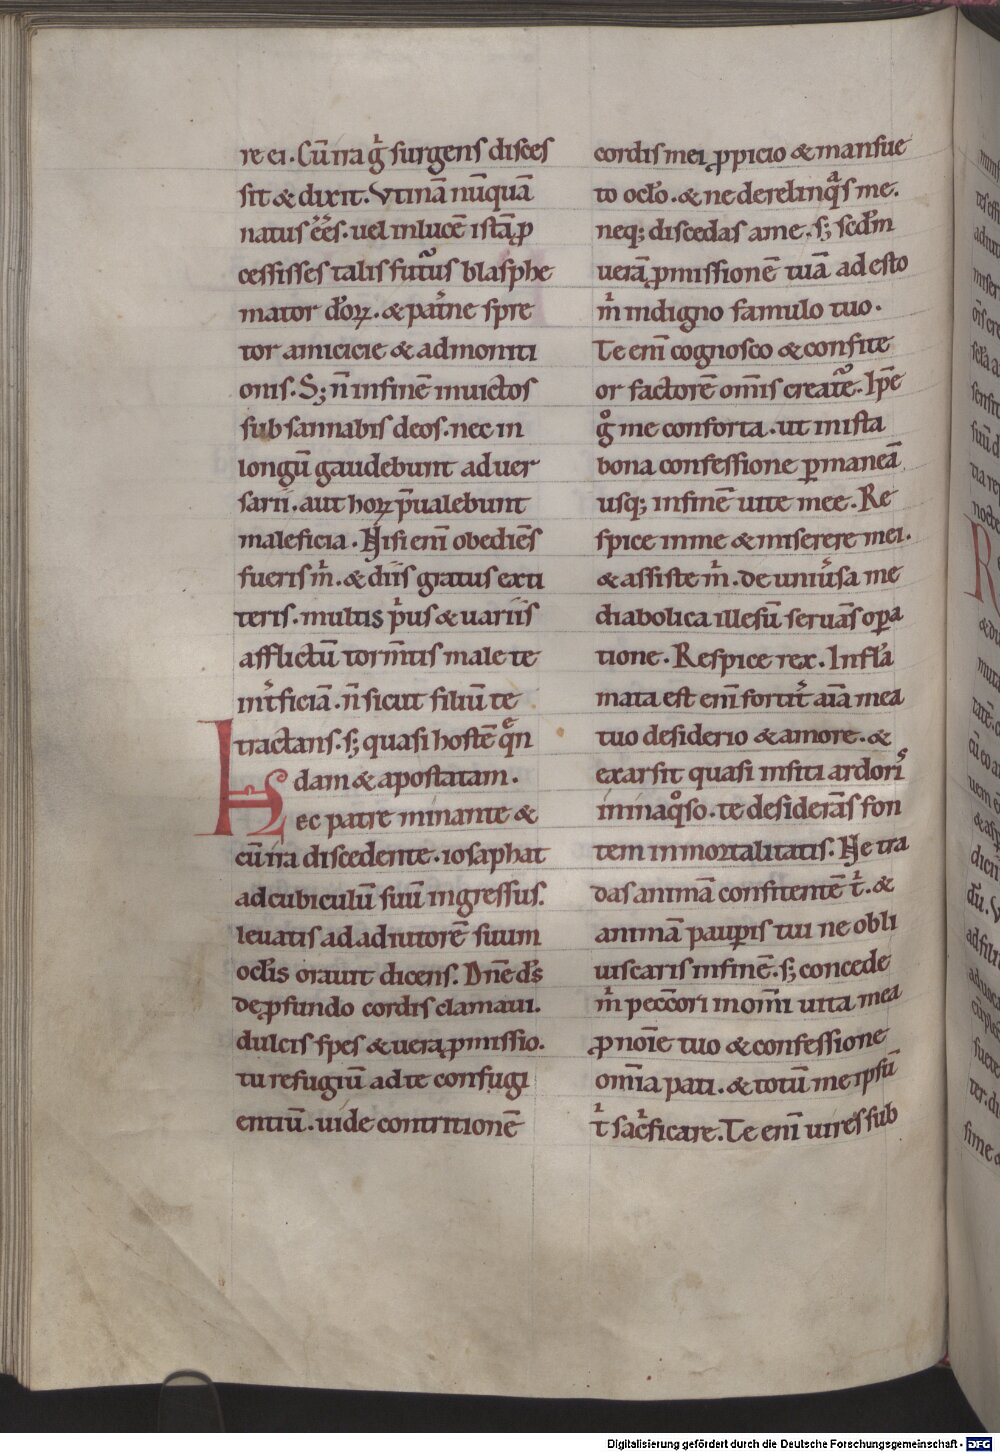 re ei. Cū ira g̊ surgens disces
sit & dixit. Vtinā nūquā
natus eēs. uel in lucē istā ꝓ
cessisses talis futur᷒ blasphe
mator dōꝝ. & pat̄ne spre
tor amicicie & admoniti
onis. S; n̄ in finē inuictos
subsannabis deos. nec in
longū gaudebunt aduer
sarii. aut hoꝝ p̄ualebunt
maleficia. Nisi enī obediēs
fueris m̄. & diis gratus exti
teris. multis p̄us & uariis
afflictū torm̄tis male te
int̄ficiā. n̄ sicut filiū te
tractans. s; quasi hostē q̄n
dam & apostatam.
Hec patre minante &
cū ira discedente. iosaphat
ad cubiculū suū ingressus.
leuatis ad adiutorē suum
ocl̄is orauit dicens. Dn̄e ds̄
de ꝓfundo cordis clamaui.
dulcis spes & uera ꝓmissio.
tu refugiū ad te confugi
entiū. uide contritionē
cordis mei ꝓpicio & mansue
to ocl̄o. & ne derelinq̄s me.
neq; discedas a me. s; scd̄m
uerā ꝓmissionē tuā adesto
m̄ indigno famulo tuo.
Te enī cognosco & confite
or factorē om̄is creatūe. Ip̄e
g̊ me conforta. ut in ista
bona confessione ꝑmaneā
usq; in finē uite mee. Re
spice in me & miserere mei.
& assiste m̄. de uniūsa me
diabolica illesū seruās oꝑa
tione. Respice rex. Infla̅
mata est enī fortit̄ aīa mea
tuo desiderio & amore. &
exarsit quasi in siti ardoris
in inaq̊so. te desiderās fon
tem inmortalitatis. Ne tra
das animā confitentē t̄. &
animā pauꝑis tui ne obli
uiscaris in finē. s; concede
m̄ pecc̄ori in om̄i uita mea
ꝓ noīe tuo & confessione
om̄ia pati. & totū me ipsū
t̄ sac̄ficare. Te enī uires sub
Digitalisierung gefördert durch die Deutsche Forschungsgemeinschaft - DFG